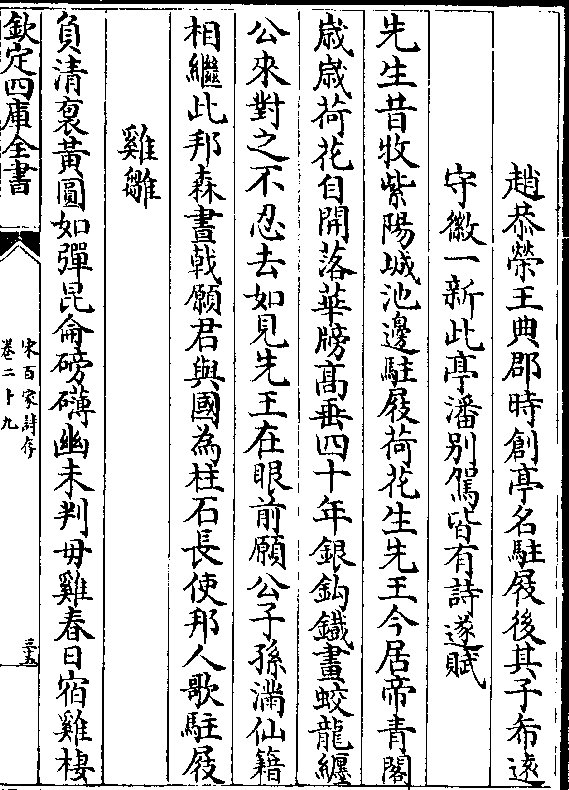 趙恭榮王典郡時創亭名駐屐後其子布逺
守徽一新此亭潘别駕皆有詩遂賦
先生昔牧紫陽城池邊駐屐荷花生先王今居帝青閣
嵗嵗荷花自開落華牓髙垂四十年銀鈎鐵畫蛟龍纒
公來對之不忍去如見先王在眼前願公子孫滿仙籍
相繼此邦森畫戟願君與國為柱石長使邦人歌駐屐
雞雛
負清裒黃圓如彈昆侖磅礴幽未判毋雞春日宿雞棲
欽定四庫全書
宋百家詩存
卷二十九
三五